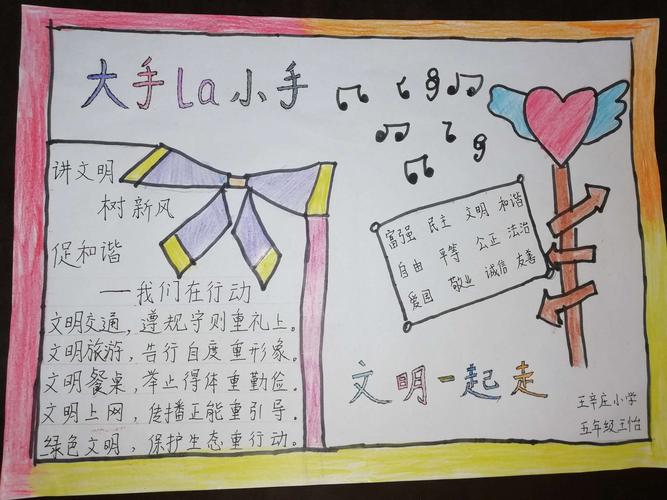 大手la小手
讲文明
树新风
促和谐
——我们在行动
文明交通，遵规守则重礼上。
文明旅游，告行自度重形象。
文明餐桌，举止得体重勤俭。
文明上网，传播正能重引导。
绿色文明，保护生态重行动。
富强 民主 文明 和谐
自由 平等 公正 法治
爱国 敬业 诚信 友善
文明一起走
王辛庄小学
五年级王怡